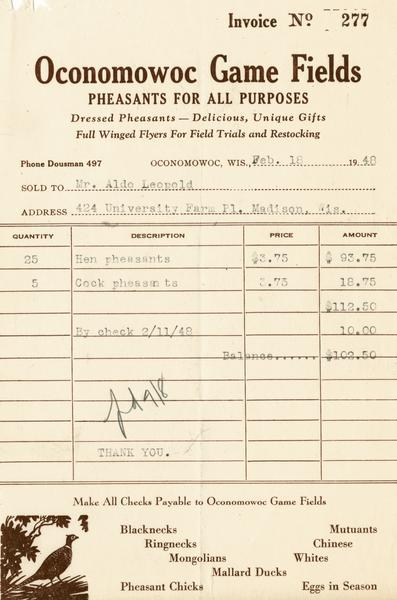 Invoice No 277
Oconomowoc Game Fields
PHEASANTS FOR ALL PURPOSES
Dressed Pheasants — Delicious, Unique Gifts
Full Winged Flyers For Field Trials and Restocking
Phone Dousman 497 OCONOMOWOC, WIS., Feb. 18 1948
SOLD TO Mr. Aldo Leopold
ADDRESS 424 University Farm Pl. Madison, Wis.
QUANTITY DESCRIPTION PRICE AMOUNT
25 Hen pheasants $3.75 $ 93.75
5 Cock pheasants 3.75 18.75
$112.50
By check 2/11/48 10.00
Balance...... $102.50
THANK YOU.
Make All Checks Payable to Oconomowoc Game Fields
Blacknecks Mutants
Ringnecks Chinese
Mongolians Whites
Mallard Ducks
Pheasant Chicks Eggs in Season